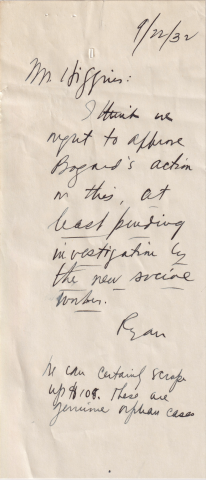 9/22/32
Mr Higgins:
I think we
ought to approve
Bogard's action
on this, at
least pending
investigation by
the new social
worker.
Ryan
We can certainly scrape
up $108. These are
genuine orphan cases